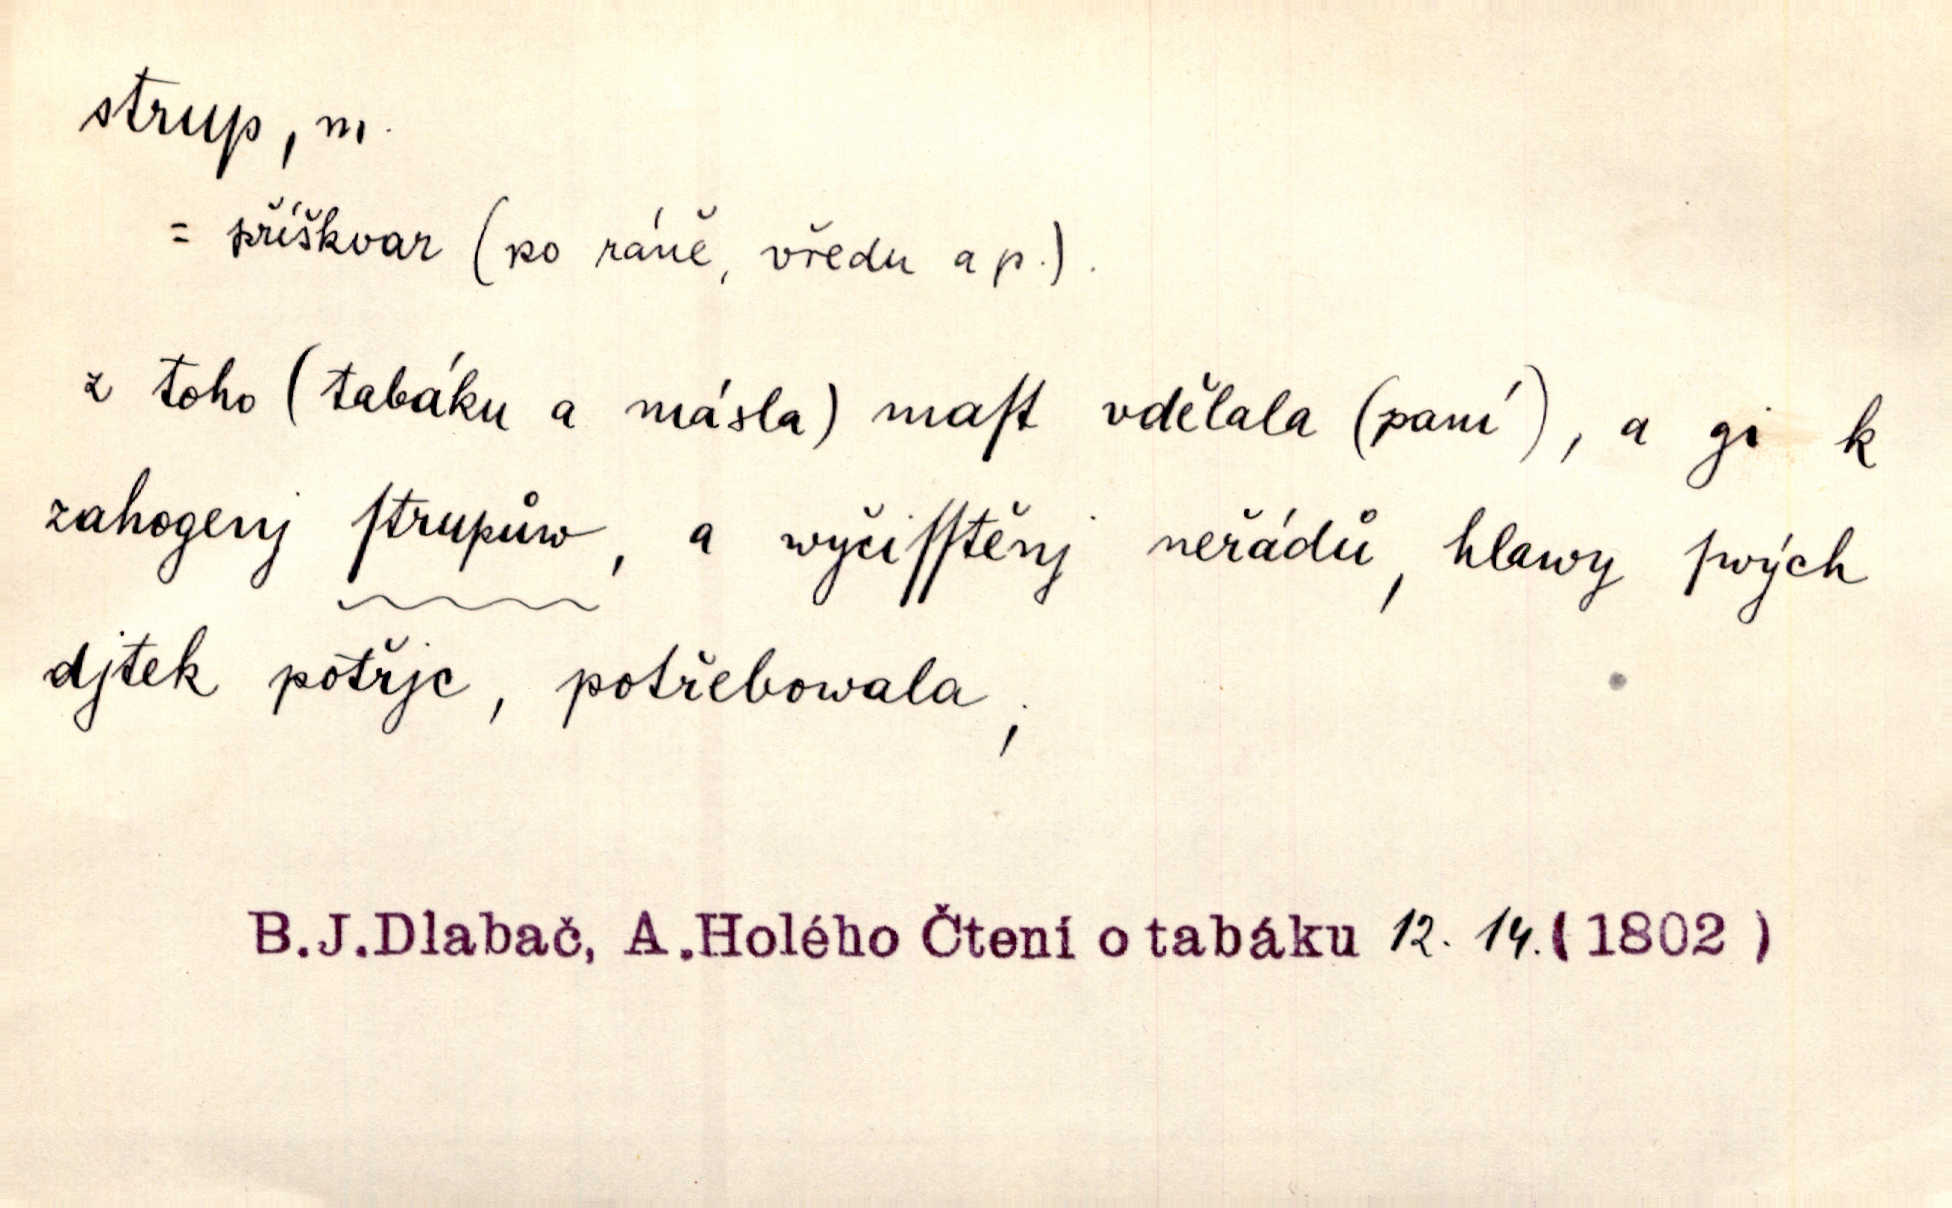 strup, m.
= příškvar (po ráně, vředu a p.).
z toho (tabáku a másla) maſt vdělala (paní), a gi k
zahogenj ſtrupůw, a wyčiſſtěnj neřádů, hlawy ſwých
djtek potřjc, potřebowala,
B.J.Dlabač, A.Holého Čtení o tabáku 12. 14. (1802)